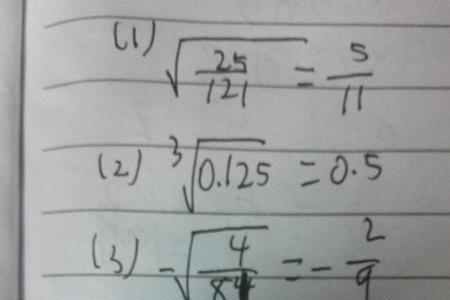 (1) √(25/121) = 5/11
(2) ³√0.125 = 0.5
(3) -√(4/8) = - 2/9